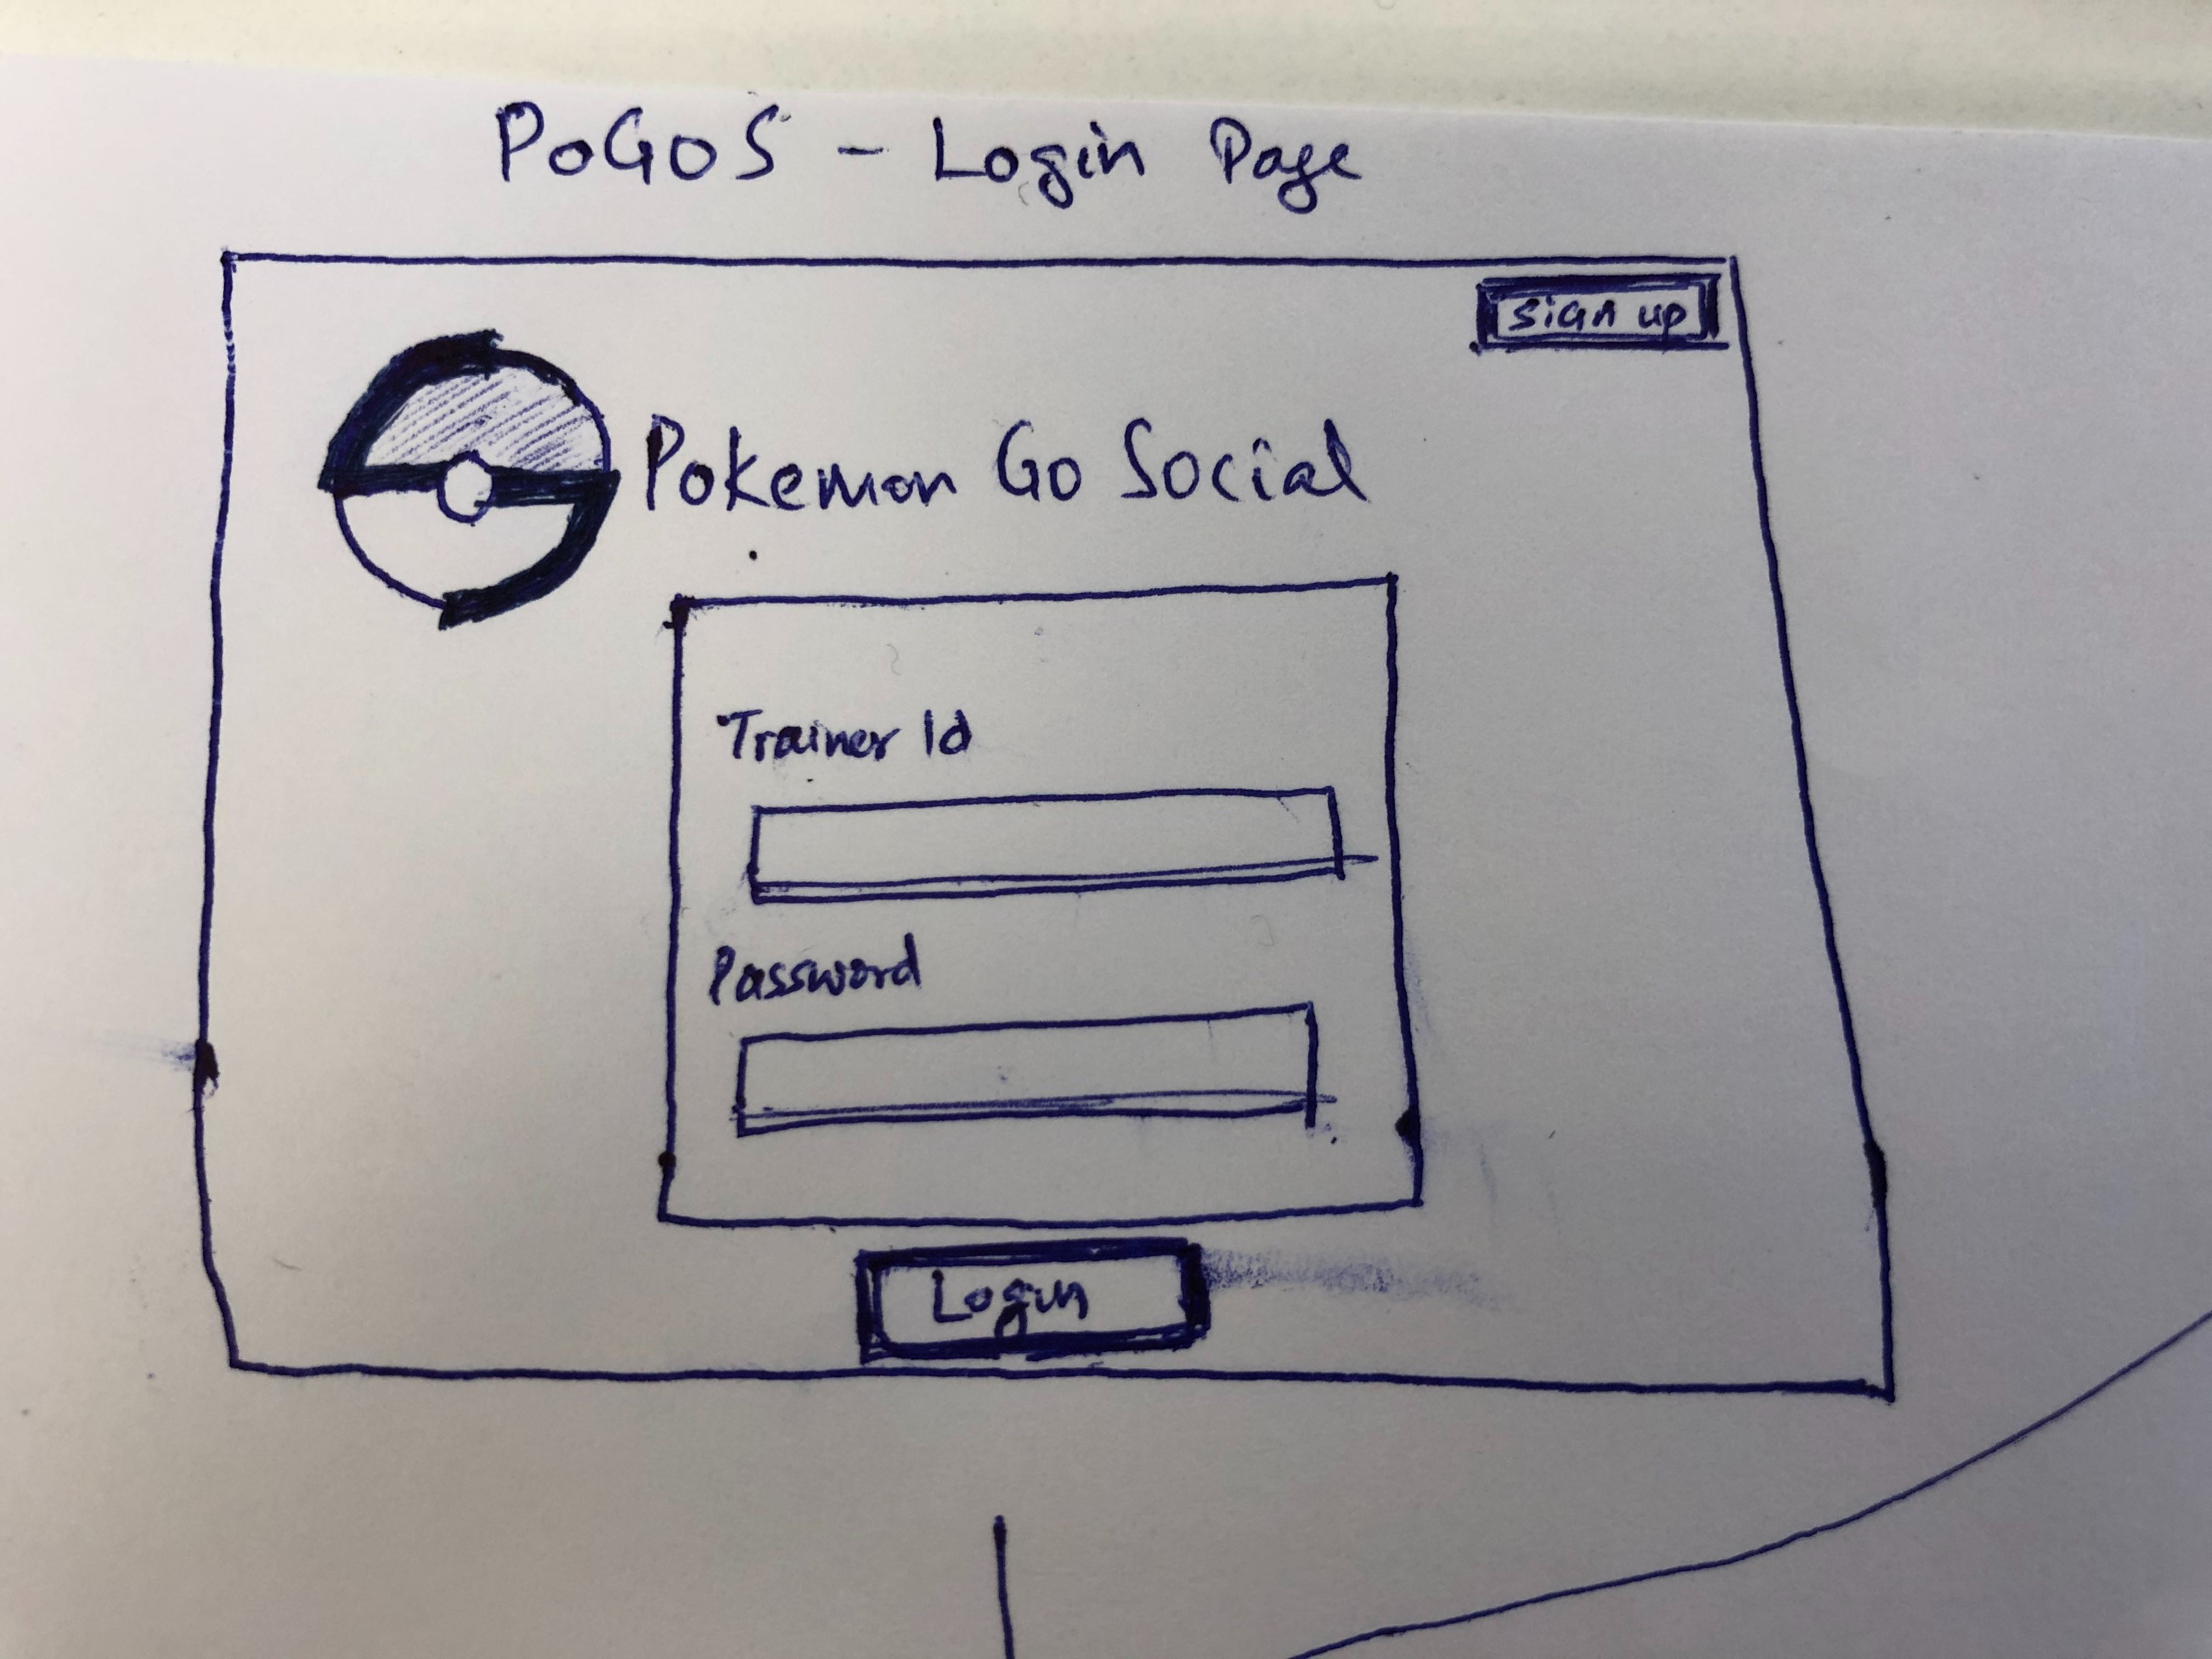 PoGOS - Login Page
Sign up
Pokemon Go Social
Trainer Id
Password
Login